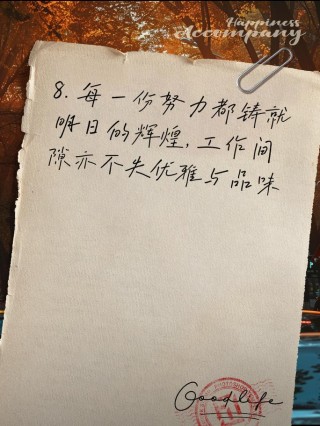 Happiness
Accompany
8. 每一份努力都铸就
明日的辉煌,工作间
隙亦不失优雅与品味
Goodlife